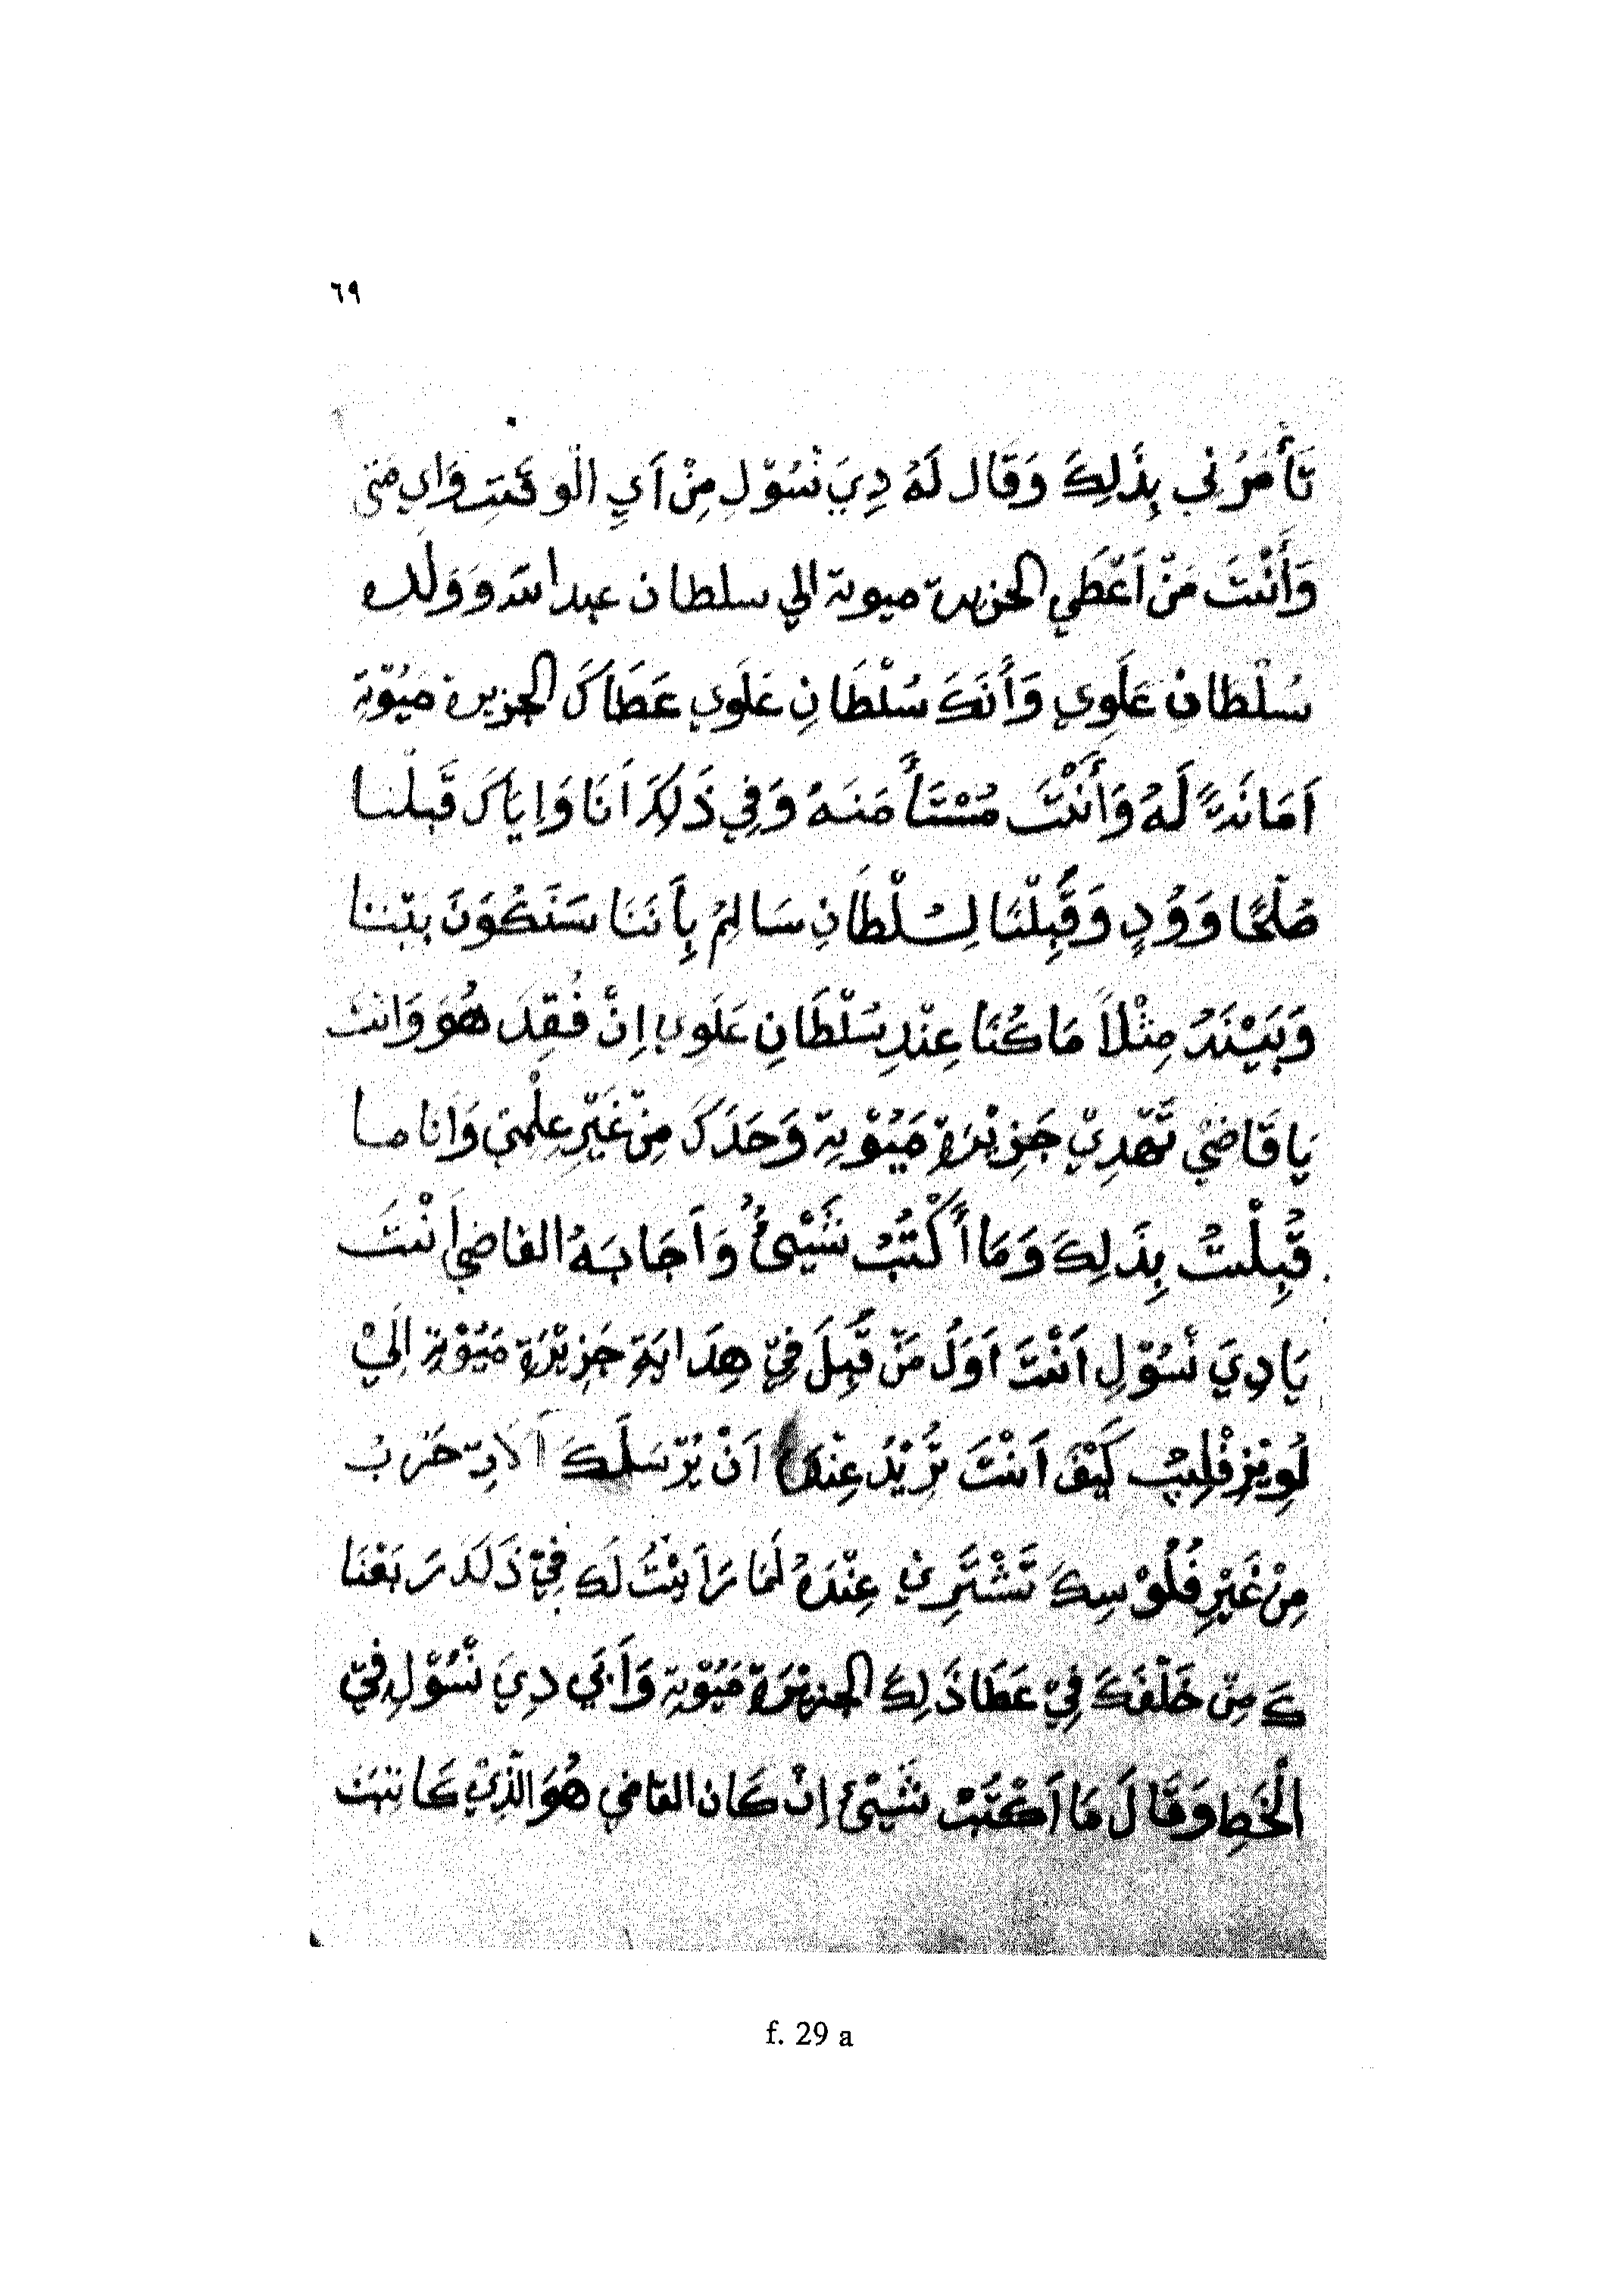 ٦٩
تَأْمُرُنِي بِذَلِكَ وَقَال لَهُ دِيَ نْسُوْلِ مِنْ اَيِ الْوقَتِ وَاي مَتى
وَأَنْتَ مَنْ اَعْطَي الجزيرة ميوتة الي سلطان عبد الله وَوَلَده
سُلْطان عَلَوِي وَأَنَكَ سُلْطَانِ عَلَوِي عَطَاَكَ الجزيرة مَيُوْتَةِ
اَمَانَةً لَهُ وَأَنْتَ مُسْتَأ مَنَهُ وَفِي ذَلِكَ اَنَا وَاِيَاكَ قَبلْنا
صُلْحًا وَوُدٍ وَقَبِلْنَا لِسُلْطَانِ سَالِمُ بِأَنَنَا سَنَكُوَنَ بيْننا
وَبَيْنَهُ مِثْلاَ مَا كُنَا عِنْدِ سُلْطَانِ عَلَوي اِنْ فُقِدَ هُوَ وَانت
يَا قَاضيْ تَهْدِيْ جَزِيْرَة مَيُوْتِة وَحَدَكَ مِنْ غَيْرِ عِلْمِيْ وَاَنا ما
قَبِلْتُ بِذَلِكَ وَمَا أَكْتُبُ شَيْئُ وَاَجَابَهُ القاضي اَنْتَ
يَا دِيَ نْسُوْلِ اَنْتَ اَوَلُ مَنْ قَبِلَ فِيْ هِدَايَةِ جَزِيْرَة مَيُوْتِة اِلَيْ
لُوِيْز فْلِيبُ كَيْفَ اَنْتَ تُرِيْدُ عِنْدَهُ اَنْ يُرْسَلَكَ اَلاَتِ حَرْبُ
مِنْ غَيْرِ فُلُوْسِكَ تَشْتَرِي عِنْدَهُ لَمَا رَاَيْتُ لَكَ فِيْ ذَلَكَ رَبَعْنَا
كَ مِنْ خَلْفَكَ فِيْ عَطَا ذَلِكَ الجزيْرَة مَيُوْتِة وَأَبَي دِيَ نْسُوْلِ فِيْ
الْخَطِ وَقَالَ مَا اَكْتُبْ شَيْئ اِنْ كَان القاضي هُوَ الَّذِيْ كَاتِبَهَ
f. 29 a